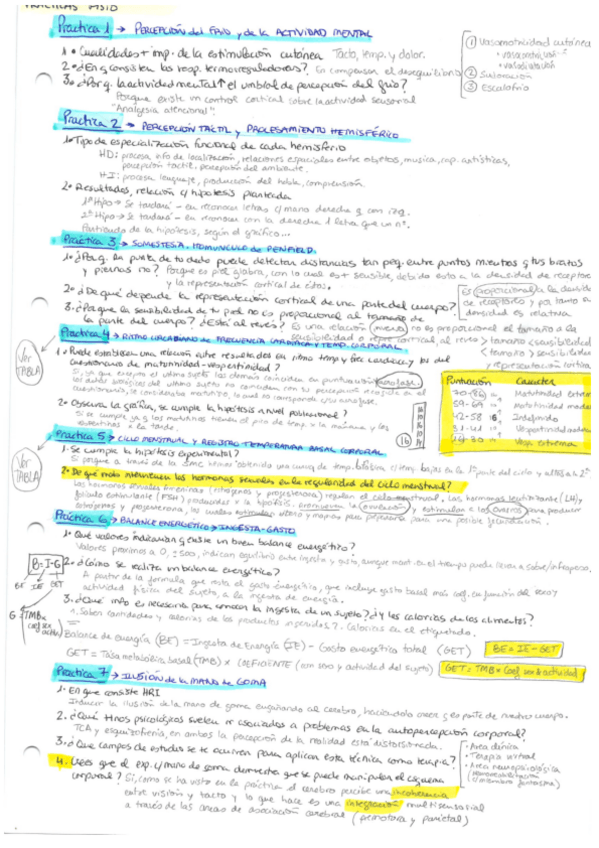 PRÁCTICAS PISID
Práctica 1 → PERCEPCIÓN del FRÍO y de la ACTIVIDAD MENTAL
1. Cualidades + imp. de la estimulación cutánea Tacto, temp. y dolor.
2. ¿En q consisten las resp. termorreguladoras? En compensar el desequilibrio
① Vasomotricidad cutánea
• vasodilatación
② Sudoración
③ Escalofrío
3. ¿Por q la actividad mental ↑ el umbral de percepción del frío?
Porque existe un control cortical sobre la actividad sensorial
"Analgesia atencional".
Práctica 2 → PERCEPCIÓN TÁCTIL y PROCESAMIENTO HEMISFÉRICO
1. Tipo de especialización funcional de cada hemisferio
HD: procesa info de localización, relaciones espaciales entre objetos, musica, cap. artísticas,
percepción tactil. percepción del ambiente.
HI: procesa lenguaje, producción del habla, comprensión.
2. Resultados, relación c/ hipótesis planteada
1ª Hipo → Se tardará - en reconocer letras c/ mano derecha q con izq.
2ª Hipo → Se tardará - en reconocer con la derecha 1 letra que un nº.
Partiendo de la hipótesis, según el gráfico...
Práctica 3 → SOMESTESIA. HOMUNCULO DE PENFIELD.
1. ¿Por q. la punta de tu dedo puede detectar distancias tan peq. entre puntos mientras q tus brazos
y piernas no? Porque es piel glabra, con lo cual es + sensible, debido esto a la densidad de receptores
y la representación cortical de éstos.
2. ¿De qué depende la representación cortical de una parte del cuerpo?
Es proporcional a la densidad
de receptores y por tanto su
densidad es relativa
3. ¿Por que la sensibilidad de tu piel no es proporcional al tamaño de
la parte del cuerpo? ¿Está al revés? Es una relación inversa no es proporcional el tamaño a la
sensibilidad o repre cortical, al revés > tamaño < sensibilidad
< tamaño > sensibilidad
y representación cortical
Práctica 4 → RITMO CIRCADIANO DE FRECUENCIA CARDIACA y TEMP. CORPORAL
Ver TABLA
1. ¿Puede establecer una relación entre resultados en ritmo temp y frec cardiaca y los del
cuestionario de matutinidad-vespertinidad?
Puntuación Carácter
70-86 Matutinidad extrema
59-69 Matutinidad moderada
42-58 Indefinido
31-41 Vespertinidad
16-30 Vesp. extrema
2. Observa la gráfica, se cumple la hipótesis a nivel poblacional?
Si se cumple ya q los matutinos tienen el pico de temp. x la mañana y los
vespertinos a la tarde.
16
Práctica 5 → CICLO MENSTRUAL Y REGISTRO TEMPERATURA BASAL CORPORAL
Ver TABLA
1. Se cumple la hipótesis experimental?
2. De qué modo intervienen las hormonas sexuales en la regularidad del ciclo menstrual?
Las hormonas sexuales femeninas (estrógenos y progesterona) regulan el ciclo menstrual. Las hormonas luteinizante (LH) y
folículo estimulante (FSH) producidas x la hipófisis, promueven la ovulación y estimulan a los ovarios para producir
estrógenos y progesterona, los cuales estimulan útero y mamas para prepararlas para una posible fecundación.
Práctica 6 → BALANCE ENERGÉTICO → INGESTA-GASTO
1. Qué valores indicarían q existe un buen balance energético?
Valores próximos a 0, ±500, indican equilibrio entre ingesta y gasto, aunque
B = I-G
BE IE GET
2. ¿Cómo se realiza un balance energético?
A partir de la formula que resta el gasto energético, que incluye gasto basal más coef. en función del sexo y
actividad física del sujeto, a la ingesta de energía.
G = TMB x
3. ¿Que info es necesaria para conocer la ingesta de un sujeto? ¿y las calorías de los alimentos?
1. Saber cantidades y calorías de los productos ingeridos. 2. Calorías en el etiquetado.
Balance de energía (BE) = Ingesta de Energía (IE) - Gasto energético total (GET) BE = IE - GET
GET = Tasa metabólica basal (TMB) x COEFICIENTE (con sexo y actividad del sujeto) GET = TMB x Coef sex & actividad
Práctica 7 → ILUSIÓN DE LA MANO DE GOMA
1. En que consiste HRI
Inducir la ilusión de la mano de goma engañando al cerebro, haciéndolo creer q es parte de nuestro cuerpo.
2. ¿Qué ttnos psicológicos suelen ir asociados a problemas en la autopercepción corporal?
TCA y esquizofrenia, en ambos la percepción de la realidad está distorsionada.
3. ¿Que campos de estudio se te ocurren para aplicar esta técnica como terapia?
• Area clínica
• Terapia virtual
• Area neuropsicológica
(Neurorehabilitación
c/ miembro fantasma)
4. Crees que el exp. c/ mano de goma demuestra que se puede manipular el esquema
corporal? Si, como se ha visto en la práctica el cerebro percibe una incoherencia
entre visión y tacto y lo que hace es una integración multisensorial
a través de las áreas de asociación cerebral (premotora y parietal)